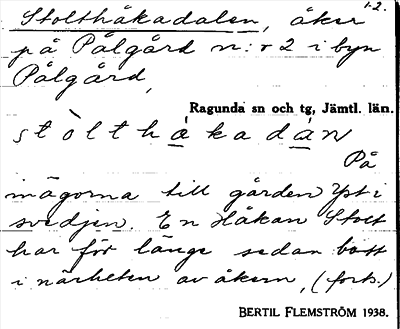 1-2.
Stolthåkadalen, åker
på Pålgård n:r 2 i byn
Pålgård,
Ragunda sn och tg, Jämtl. län.
stòlthǻkadán
På
inägorna till gården Yst i
svedjen. En Håkan Stolt
har för länge sedan bott
i närheten av åkern, (forts.)
BERTIL FLEMSTRÖM 1938.